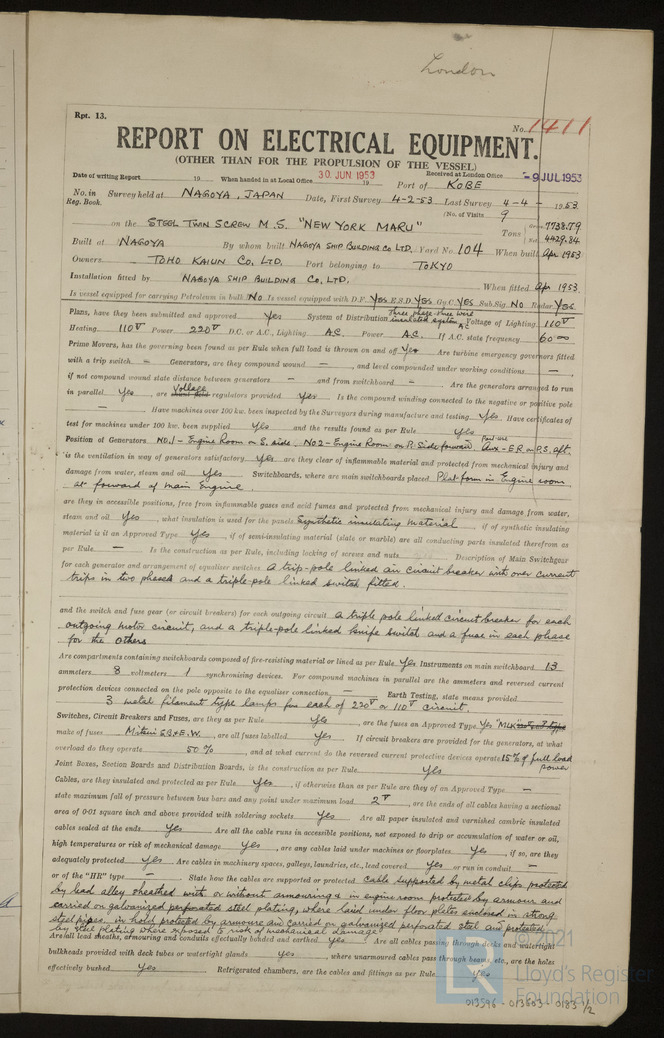 London
Rpt. 13.
No. 1411
REPORT ON ELECTRICAL EQUIPMENT.
(OTHER THAN FOR THE PROPULSION OF THE VESSEL)
Date of writing Report 19 When handed in at Local Office 30 JUN 1953 19 Received at London Office -9 JUL 1953
Port of KOBE
No. in Reg. Book. Survey held at NAGOYA, JAPAN Date, First Survey 4-2-53 Last Survey 4-4- 1953
(No. of Visits 9
on the STEEL TWIN SCREW M.S. "NEW YORK MARU" Tons Gross 7738.79 Net 4429.84
Built at NAGOYA By whom built NAGOYA SHIP BUILDING CO LTD. Yard No. 104 When built Apr 1953
Owners TOHO KAIUN CO. LTD. Port belonging to TOKYO
Installation fitted by NAGOYA SHIP BUILDING CO, LTD. When fitted Apr 1953
Is vessel equipped for carrying Petroleum in bulk No Is vessel equipped with D.F. YES E.S.D. YES Gy.C. YES Sub.Sig. NO Radar YES
Plans, have they been submitted and approved Yes System of Distribution Three phase three wire insulated system AC Voltage of Lighting 110V
Heating 110V Power 220V D.C. or A.C., Lighting A.C. Power A.C. If A.C. state frequency 60
Prime Movers, has the governing been found as per Rule when full load is thrown on and off Yes Are turbine emergency governors fitted
with a trip switch - Generators, are they compound wound - , and level compounded under working conditions - ,
if not compound wound state distance between generators - and from switchboard - . Are the generators arranged to run
in parallel Yes , are Voltage regulators provided Yes Is the compound winding connected to the negative or positive pole
- Have machines over 100 kw. been inspected by the Surveyors during manufacture and testing Yes Have certificates of
test for machines under 100 kw. been supplied Yes and the results found as per Rule Yes
Position of Generators No.1 - Engine Room on S. side, No2 - Engine Room on P. Side forward Aux - E.R on P.S. aft.
is the ventilation in way of generators satisfactory Yes are they clear of inflammable material and protected from mechanical injury and
damage from water, steam and oil Yes Switchboards, where are main switchboards placed Platform in Engine room
at forward of main Engine.
are they in accessible positions, free from inflammable gases and acid fumes and protected from mechanical injury and damage from water,
steam and oil Yes , what insulation is used for the panels Synthetic insulating material , if of synthetic insulating
material is it an Approved Type Yes , if of semi-insulating material (slate or marble) are all conducting parts insulated therefrom as
per Rule - Is the construction as per Rule, including locking of screws and nuts Description of Main Switchgear
for each generator and arrangement of equaliser switches A trip-pole linked air circuit breaker with over current
trips in two phases and a triple-pole linked switch fitted.
and the switch and fuse gear (or circuit breakers) for each outgoing circuit a triple pole linked circuit breaker for each
outgoing motor circuit, and a triple-pole linked knife switch and a fuse in each phase
for the others
Are compartments containing switchboards composed of fire-resisting material or lined as per Rule Yes Instruments on main switchboard 13
ammeters 8 voltmeters 1 synchronizing devices. For compound machines in parallel are the ammeters and reversed current
protection devices connected on the pole opposite to the equaliser connection - Earth Testing, state means provided
3 metal filament type lamps for each of 220V or 110V circuit.
Switches, Circuit Breakers and Fuses, are they as per Rule Yes , are the fuses an Approved Type Yes "MLK"
make of fuses Mitsui SB & E.W. , are all fuses labelled Yes If circuit breakers are provided for the generators, at what
overload do they operate 50% , and at what current do the reversed current protective devices operate 15% of full load power
Joint Boxes, Section Boards and Distribution Boards, is the construction as per Rule Yes
Cables, are they insulated and protected as per Rule Yes , if otherwise than as per Rule are they of an Approved Type -
state maximum fall of pressure between bus bars and any point under maximum load 2V , are the ends of all cables having a sectional
area of 0·01 square inch and above provided with soldering sockets Yes Are all paper insulated and varnished cambric insulated
cables sealed at the ends Yes Are all the cable runs in accessible positions, not exposed to drip or accumulation of water or oil,
high temperatures or risk of mechanical damage Yes , are any cables laid under machines or floorplates Yes , if so, are they
adequately protected Yes Are cables in machinery spaces, galleys, laundries, etc., lead covered Yes or run in conduit -
or of the "HR" type - State how the cables are supported or protected Cable supported by metal clips protected
by lead alloy sheathed with or without armouring & in engine room protected by armour and
carried on galvanized perforated steel plating, where laid under floor plates enclosed in strong
steel pipes, in hold protected by armour and carried on galvanized perforated steel and protected
by steel plating where exposed to risk of mechanical damage
Are all lead sheaths, armouring and conduits effectually bonded and earthed Yes Are all cables passing through decks and watertight
bulkheads provided with deck tubes or watertight glands Yes , where unarmoured cables pass through beams, etc., are the holes
effectively bushed Yes Refrigerated chambers, are the cables and fittings as per Rule Yes
© 2021
Lloyd's Register
Foundation
013596 - 013603 - 0183 1/2